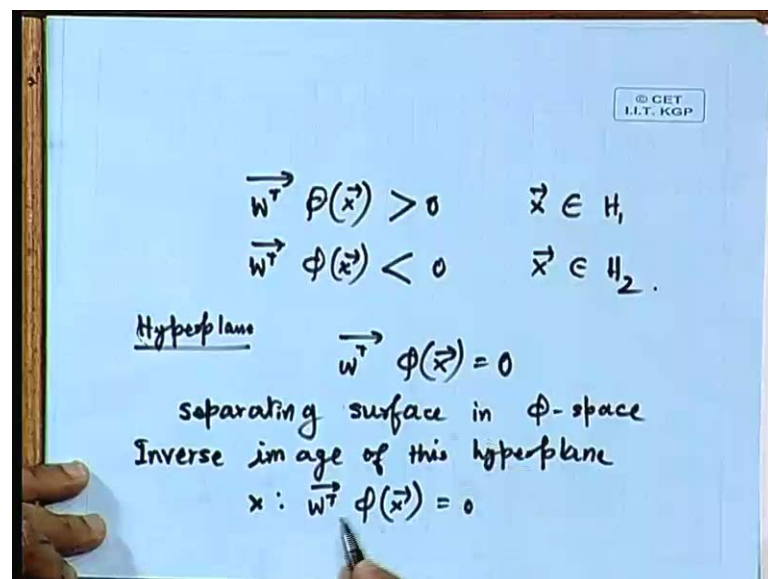 © CET
I.I.T. KGP
w^T φ(x⃗) > 0    x⃗ ∈ H₁
w^T φ(x⃗) < 0    x⃗ ∈ H₂.
Hyperplane
w^T φ(x⃗) = 0
separating surface in φ-space
Inverse image of this hyperplane
x : w^T φ(x⃗) = 0